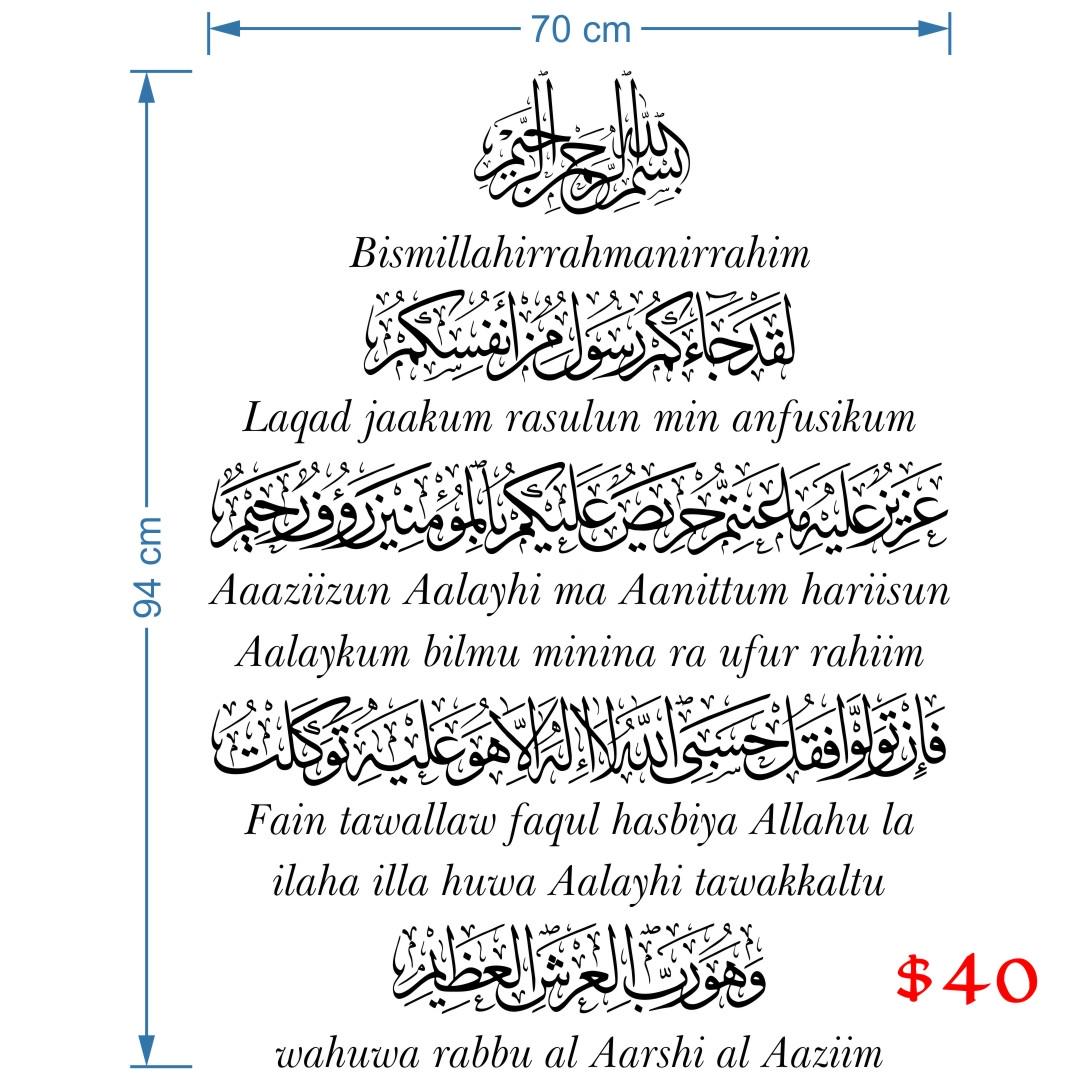 70 cm
94 cm
بسم الله الرحمن الرحيم
Bismillahirrahmanirrahim
لَقَدْ جَاءَكُمْ رَسُولٌ مِنْ أَنْفُسِكُمْ
Laqad jaakum rasulun min anfusikum
عَزِيزٌ عَلَيْهِ مَا عَنِتُّمْ حَرِيصٌ عَلَيْكُمْ بِالْمُؤْمِنِينَ رَؤُوفٌ رَحِيمٌ
Aaaziizun Aalayhi ma Aanittum hariisun
Aalaykum bilmu minina ra ufur rahiim
فَإِنْ تَوَلَّوْا فَقُلْ حَسْبِيَ اللَّهُ لَا إِلَهَ إِلَّا هُوَ عَلَيْهِ تَوَكَّلْتُ
Fain tawallaw faqul hasbiya Allahu la
ilaha illa huwa Aalayhi tawakkaltu
وَهُوَ رَبُّ الْعَرْشِ الْعَظِيمِ
$40
wahuwa rabbu al Aarshi al Aaziim